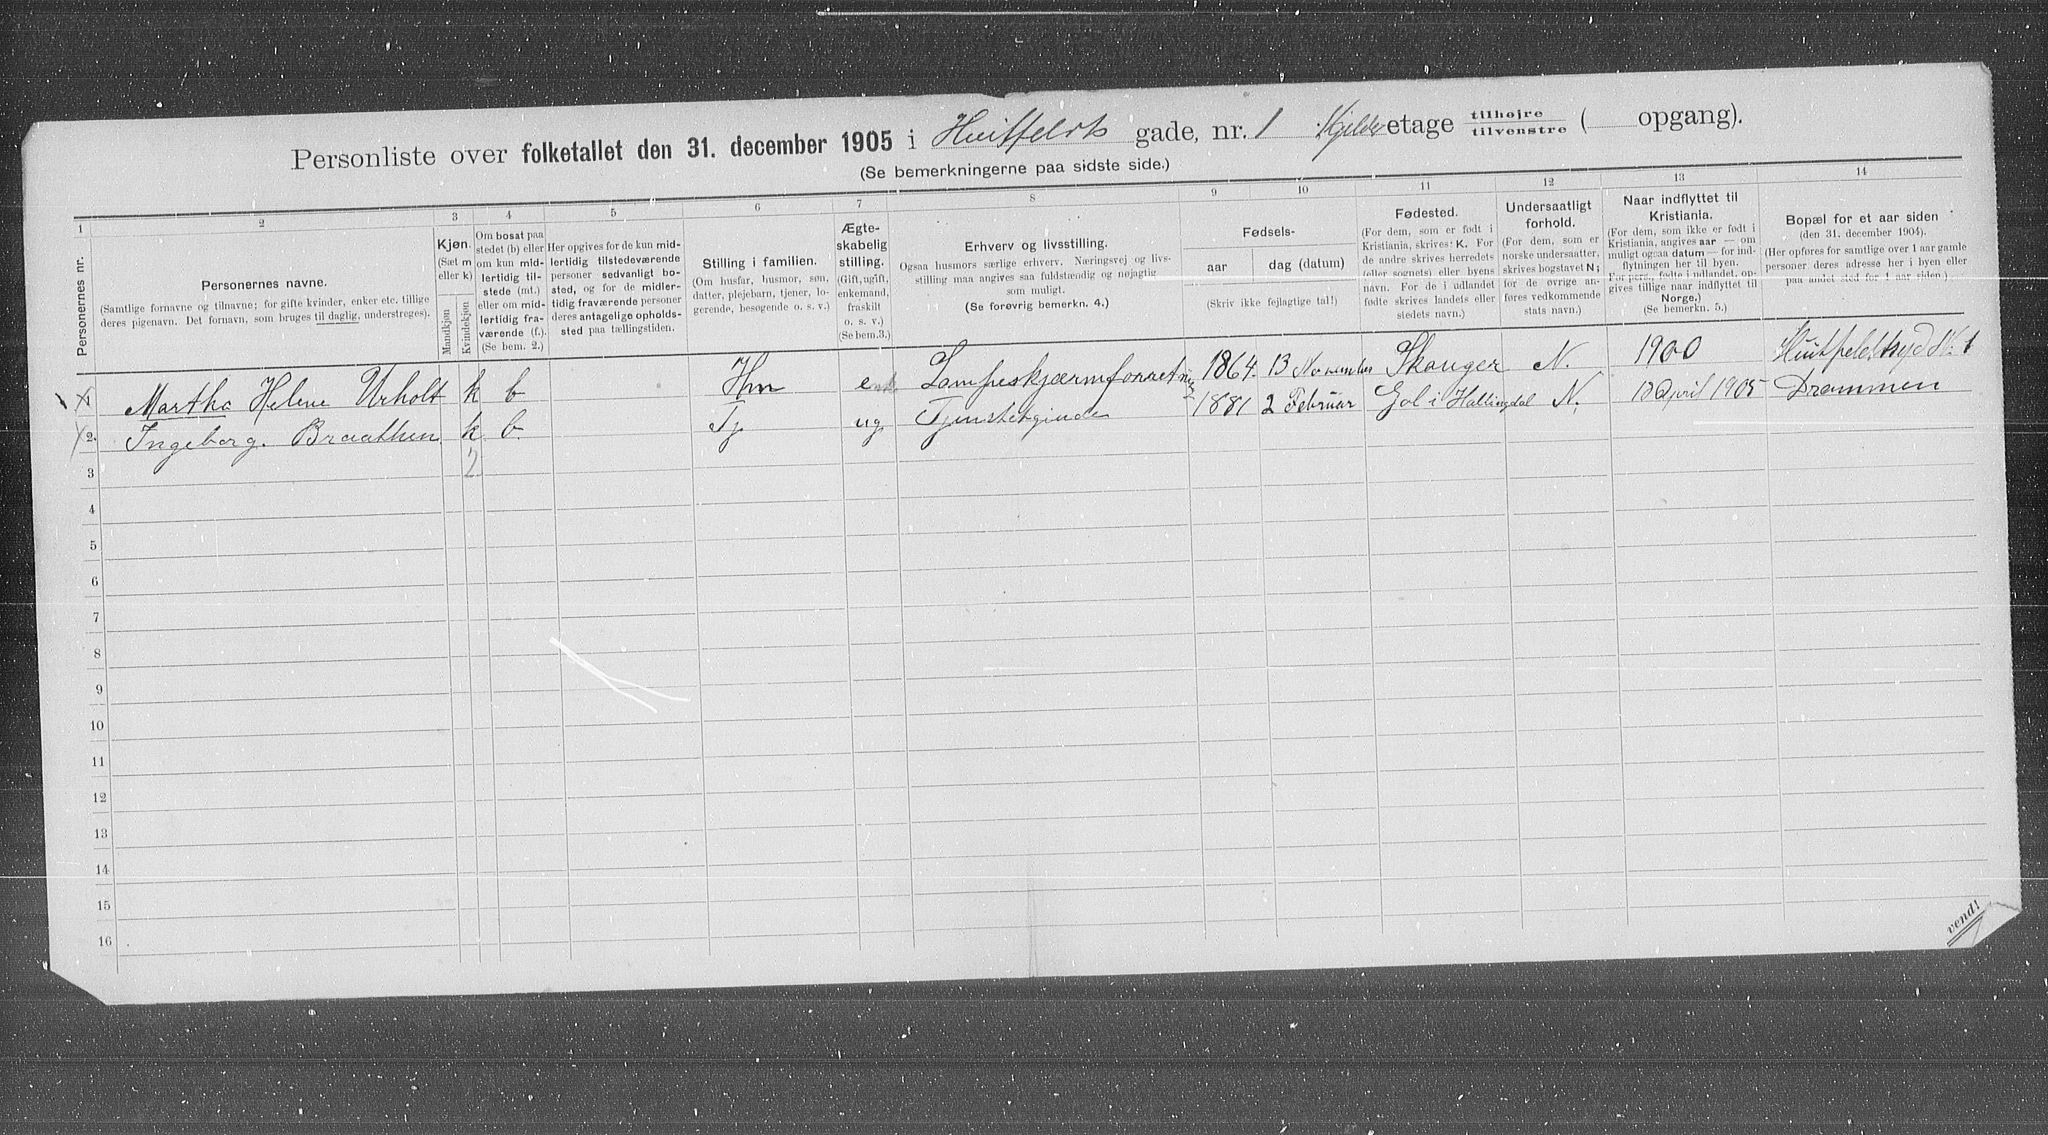 Personliste over folketallet den 31. december 1905 i Huitfeldts gade, nr. 1 Kjelder etage tilhøjre / tilvenstre ( opgang).
(Se bemerkningerne paa sidste side.)
1 2 3 4 5 6 7 8 9 10 11 12 13 14
Personernes nr.
Personernes navne.
(Samtlige fornavne og tilnavne; for gifte kvinder, enker etc. tillige
deres pigenavn. Det fornavn, som bruges til daglig, understreges).
Kjøn.
(Sæt m
eller k)
Mandkjøn
Kvindekjøn
Om bosat paa
stedet (b) eller
om kun mid-
lertidig til-
stede (mt.)
eller om mid-
lertidig fra-
værende (f.).
(Se bem. 2.)
Her opgives for de kun mid-
lertidig tilstedeværende
personer sedvanligt bo-
sted, og for de midler-
tidig fraværende personer
deres antagelige opholds-
sted paa tællingstiden.
Stilling i familien.
(Om husfar, husmor, søn,
datter, plejebarn, tjener, lo-
gerende, besøgende o. s. v.)
Ægte-
skabelig
stilling.
(Gift, ugift,
enkemand,
fraskilt
o. s. v.)
(Se bem. 3.)
Erhverv og livsstilling.
Ogsaa husmors særlige erhverv. Næringsvej og livs-
stilling maa angives saa fuldstændig og nøjagtig
som muligt.
(Se forøvrig bemerkn. 4.)
Fødsels-
aar
dag (datum)
(Skriv ikke fejlagtige tal!)
Fødested.
(For dem, som er født i
Kristiania, skrives: K. For
de andre skrives herredets
(eller sognets) eller byens
navn. For de i udlandet
fødte skrives landets eller
stedets navn.)
Undersaatligt
forhold.
(For dem, som er
norske undersaatter,
skrives bogstavet N;
for de øvrige an-
føres vedkommende
stats navn.)
Naar indflyttet til
Kristiania.
(For dem, som ikke er født i
Kristiania, angives aar — om
muligt ogsaa datum — for ind-
flytningen her til byen.
For dem, fødte i udlandet, op-
gives tillige naar indflyttet til
Norge.)
(Se bemerkn. 5.)
Bopæl for et aar siden
(den 31. december 1904).
(Her opføres for samtlige over 1 aar gamle
personer deres adresse her i byen eller
paa andet sted for 1 aar siden.)
1 Martha Helene Urholt k b Hm enk Lampeskjærmforretning 1864. 13 November Skauger N. 1900 Huitfeldtsgd No. 1
2. Ingeborg. Braathen k b. Tj ug Tjenstekjinde 1881 2 Februar Gol i Hallingdal N. 13 April 1905 Drammen
3 2
4
5
6
7
8
9
10
11
12
13
14
15
16
vend!